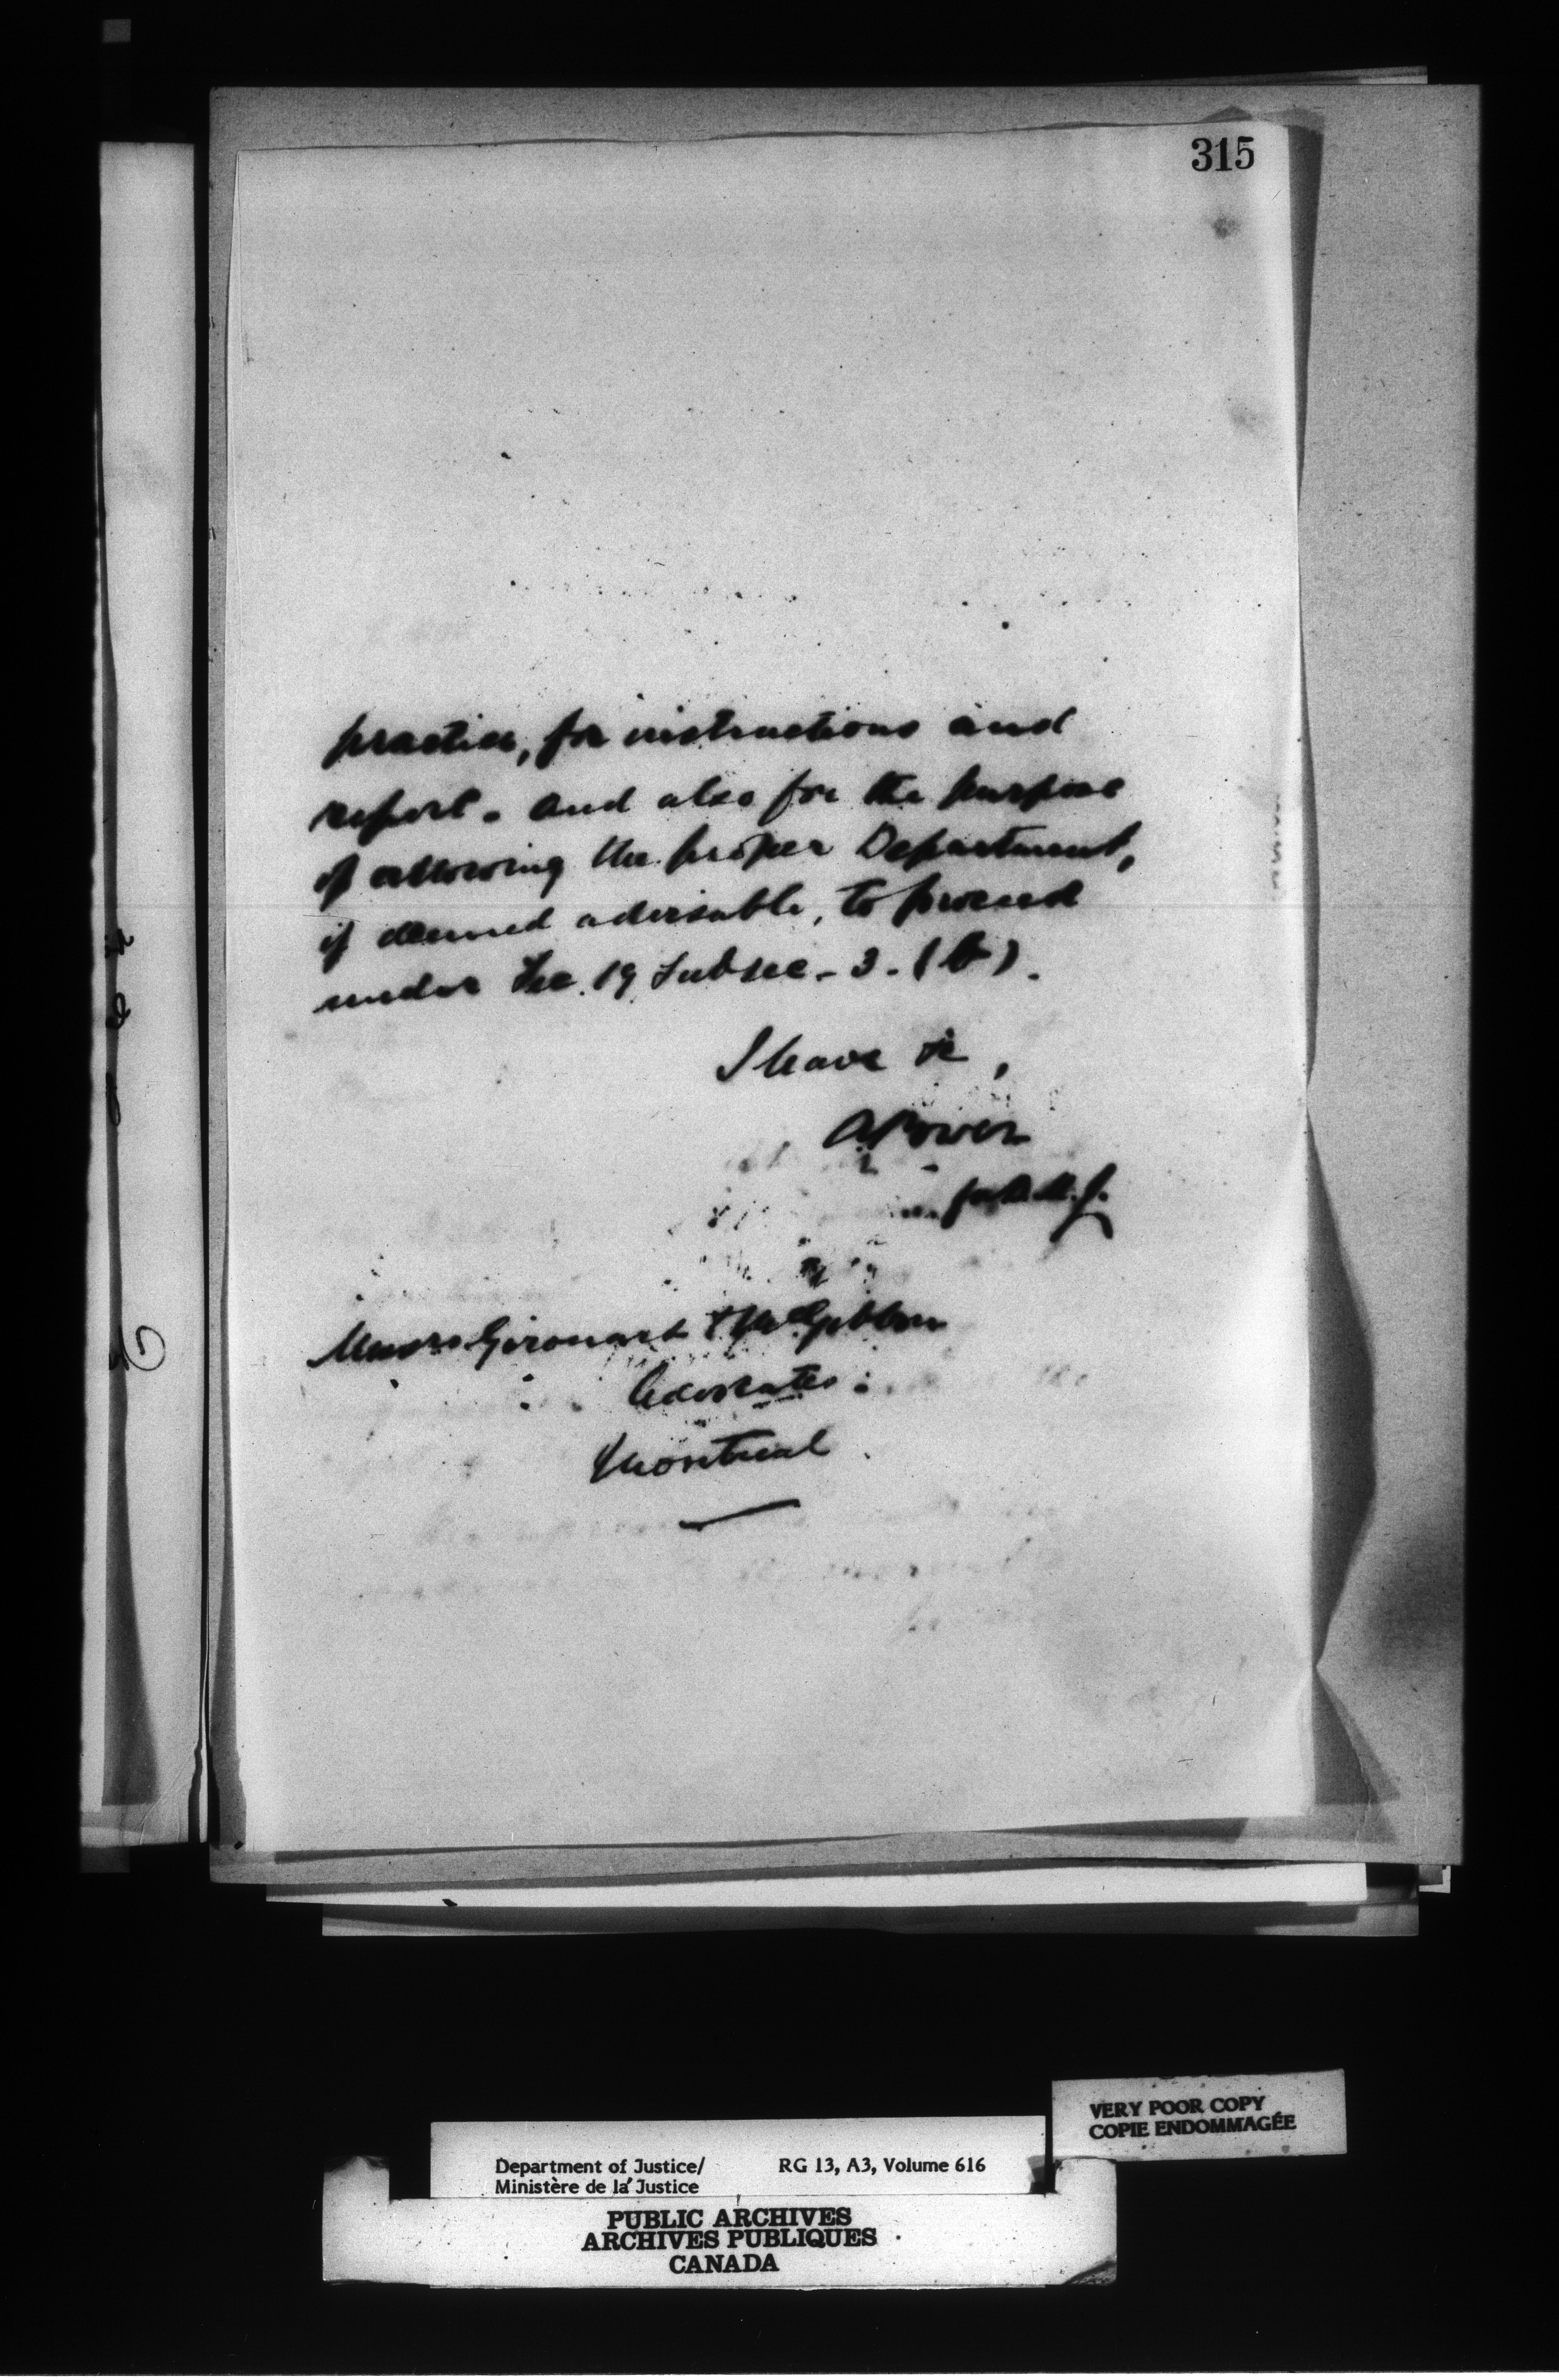 315
practice, for instructions and
report. and also for the purpose
of allowing the proper Department,
if deemed advisable, to proceed
under Sec. 19 Subsec. 3. (b).
I have &c,
A Power
for D.M.J.
Messrs Girouard & McGibbon
Advocates
Montreal
VERY POOR COPY
COPIE ENDOMMAGÉE
Department of Justice/ RG 13, A3, Volume 616
Ministère de la Justice
PUBLIC ARCHIVES
ARCHIVES PUBLIQUES
CANADA